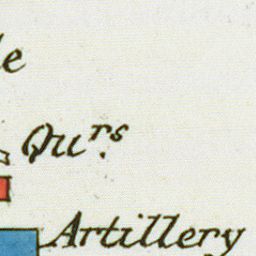 le
Qu.rs
Artillery